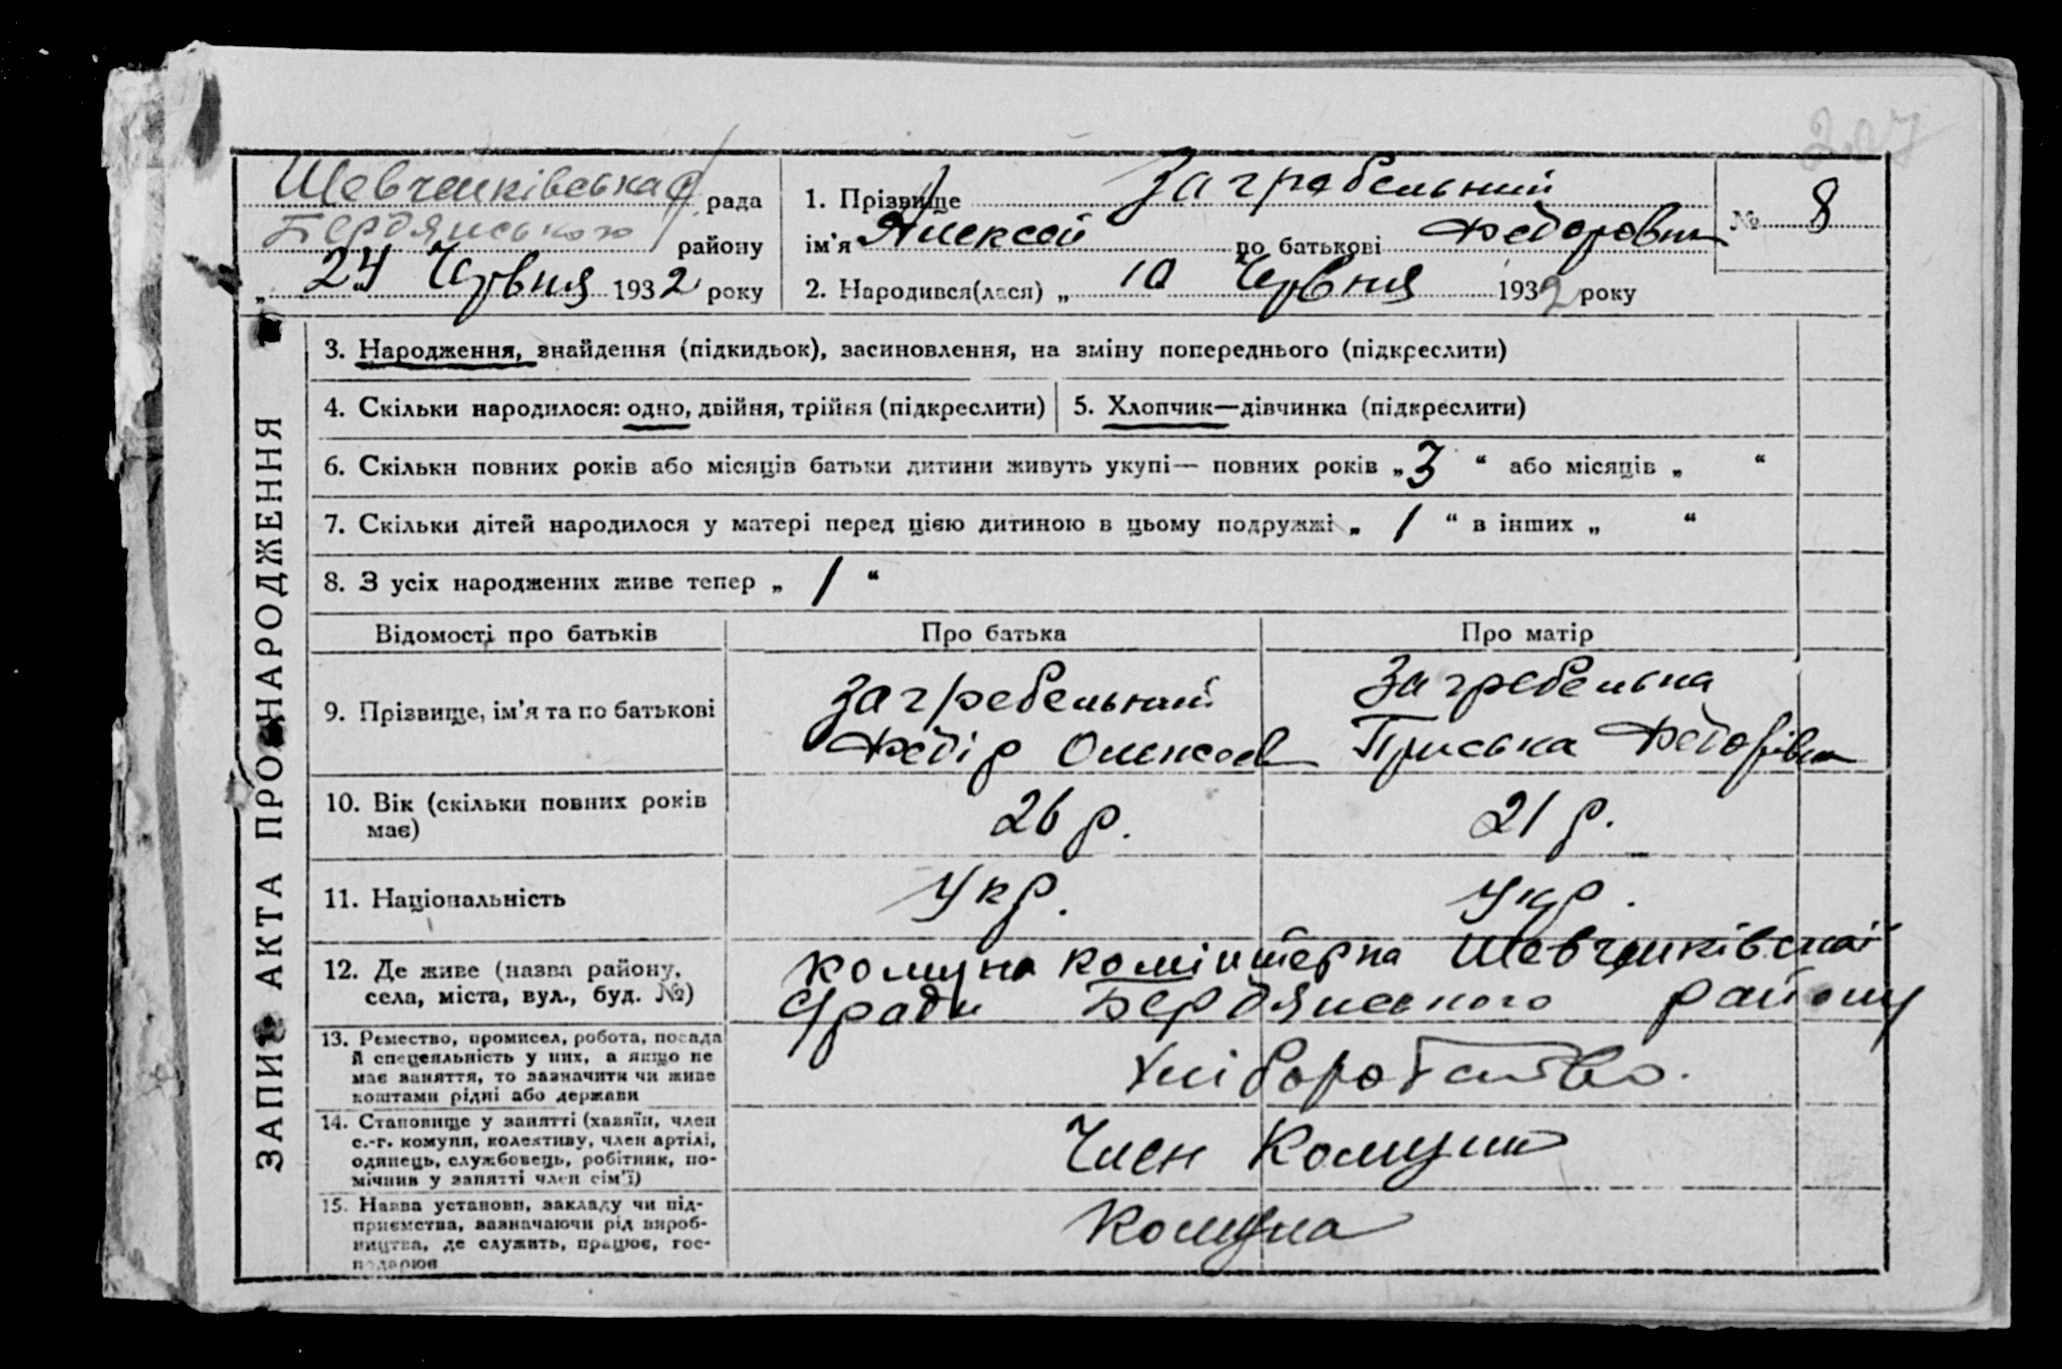 207
Шевченківська с/рада
Бердянського району
„ 24 “ Червня 1932 року
1. Прізвище Загребельний
ім'я Алексей по батькові Федорович
2. Народився(лася) „ 10 Червня 1932 року
№ 8
ЗАПИС АКТА ПРО НАРОДЖЕННЯ
3. Народження, знайдення (підкидьок), засиновлення, на зміну попереднього (підкреслити)
4. Скільки народилося: одно, двійня, трійня (підкреслити)
5. Хлопчик—дівчинка (підкреслити)
6. Скільки повних років або місяців батьки дитини живуть укупі— повних років „ 3 “ або місяців „ “
7. Скільки дітей народилося у матері перед цією дитиною в цьому подружжі „ 1 “ в інших „ “
8. З усіх народжених живе тепер „ 1 “
Відомості про батьків Про батька Про матір
9. Прізвище, ім'я та по батькові
Загребельний
Федір Олексеев
Загребельна
Приська Федорівна
10. Вік (скільки повних років
має)
26 р. 21 р.
11. Національність Укр. Укр.
12. Де живе (назва району,
села, міста, вул., буд. №)
комуна комінтерна Шевченківської
с/ради Бердянського району
13. Ремество, промисел, робота, посада
й спеціяльність у них, а якщо не
має заняття, то зазначити чи живе
коштами рідні або держави
Хліборобство.
14. Становище у занятті (хазяїн, член
с.-г. комуни, колективу, член артілі,
одинець, службовець, робітник, по-
мічник у занятті член сім'ї)
Член Комуни
15. Назва установи, закладу чи під-
приємства, зазначаючи рід вироб-
ництва, де служить, працює, гос-
подарює
Комуна